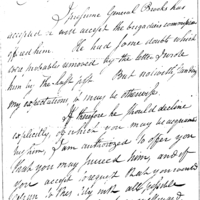 I presume General Brooks has
accepted or will accept the brigadiers commission
offered him. He had some doubt which
was probably removed by the letter I wrote
him by the last post. But notwithstanding
my expectations it may be otherwise.
If therefore he should decline
explicitly, of which you may be acquainted
by him, I am authorized to offer you
that you may succeed him, and if
you accept request that you would
repair to this City with all possible